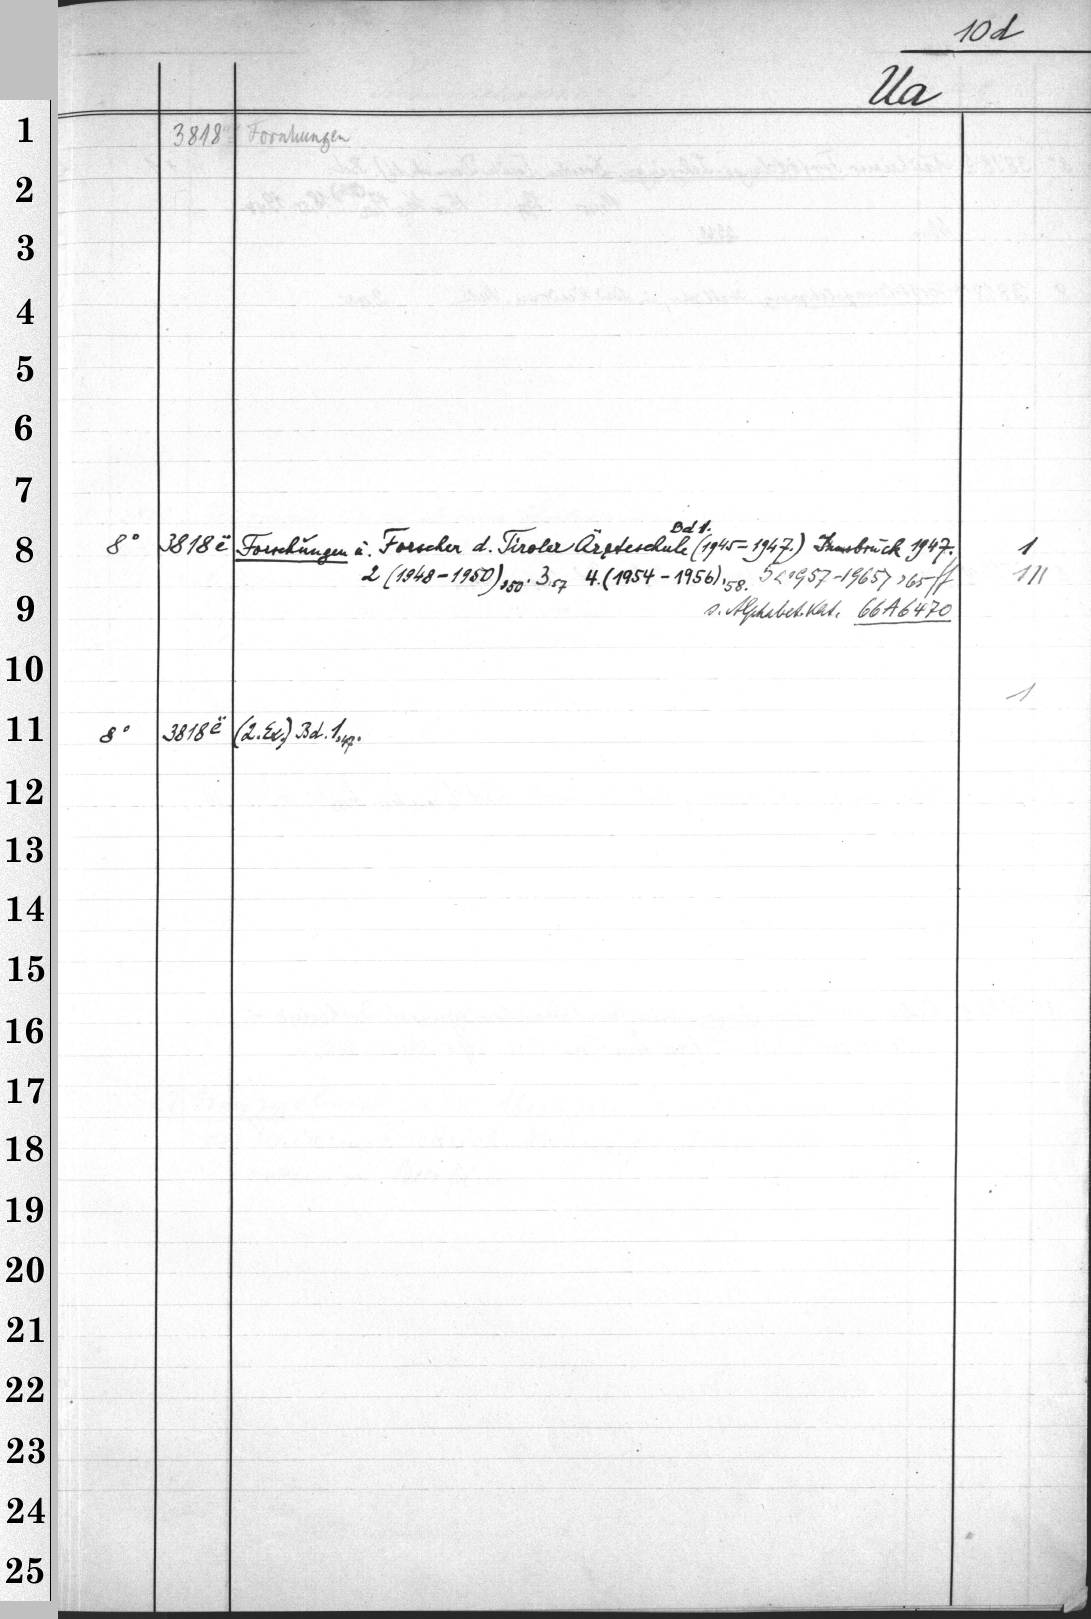 10d
Ua
1 3818 Forschungen
2
3
4
5
6
7
Bd 1.
8 8° 3818 ë Forschungen ü. Forscher d. Tiroler Ärzteschule (1945=1947.) Innsbrück 1947. 1
2 (1948-1950),950. 3,57 4.(1954-1956),58. 5<1957-1965>,65 ff 111
9 s. Alphabet.Kat. 66A6470
10
1
11 8° 3818 ë (2.Ex.) Bd.1,47.
12
13
14
15
16
17
18
19
20
21
22
23
24
25